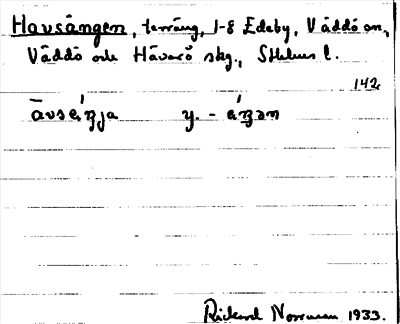 Havsängen, terräng, 1-8 Edeby, Väddö sn,
Väddö och Häverö skg., Sthlms l.
142
āvséŋja y. - éŋən
Rickard Norrman 1933.